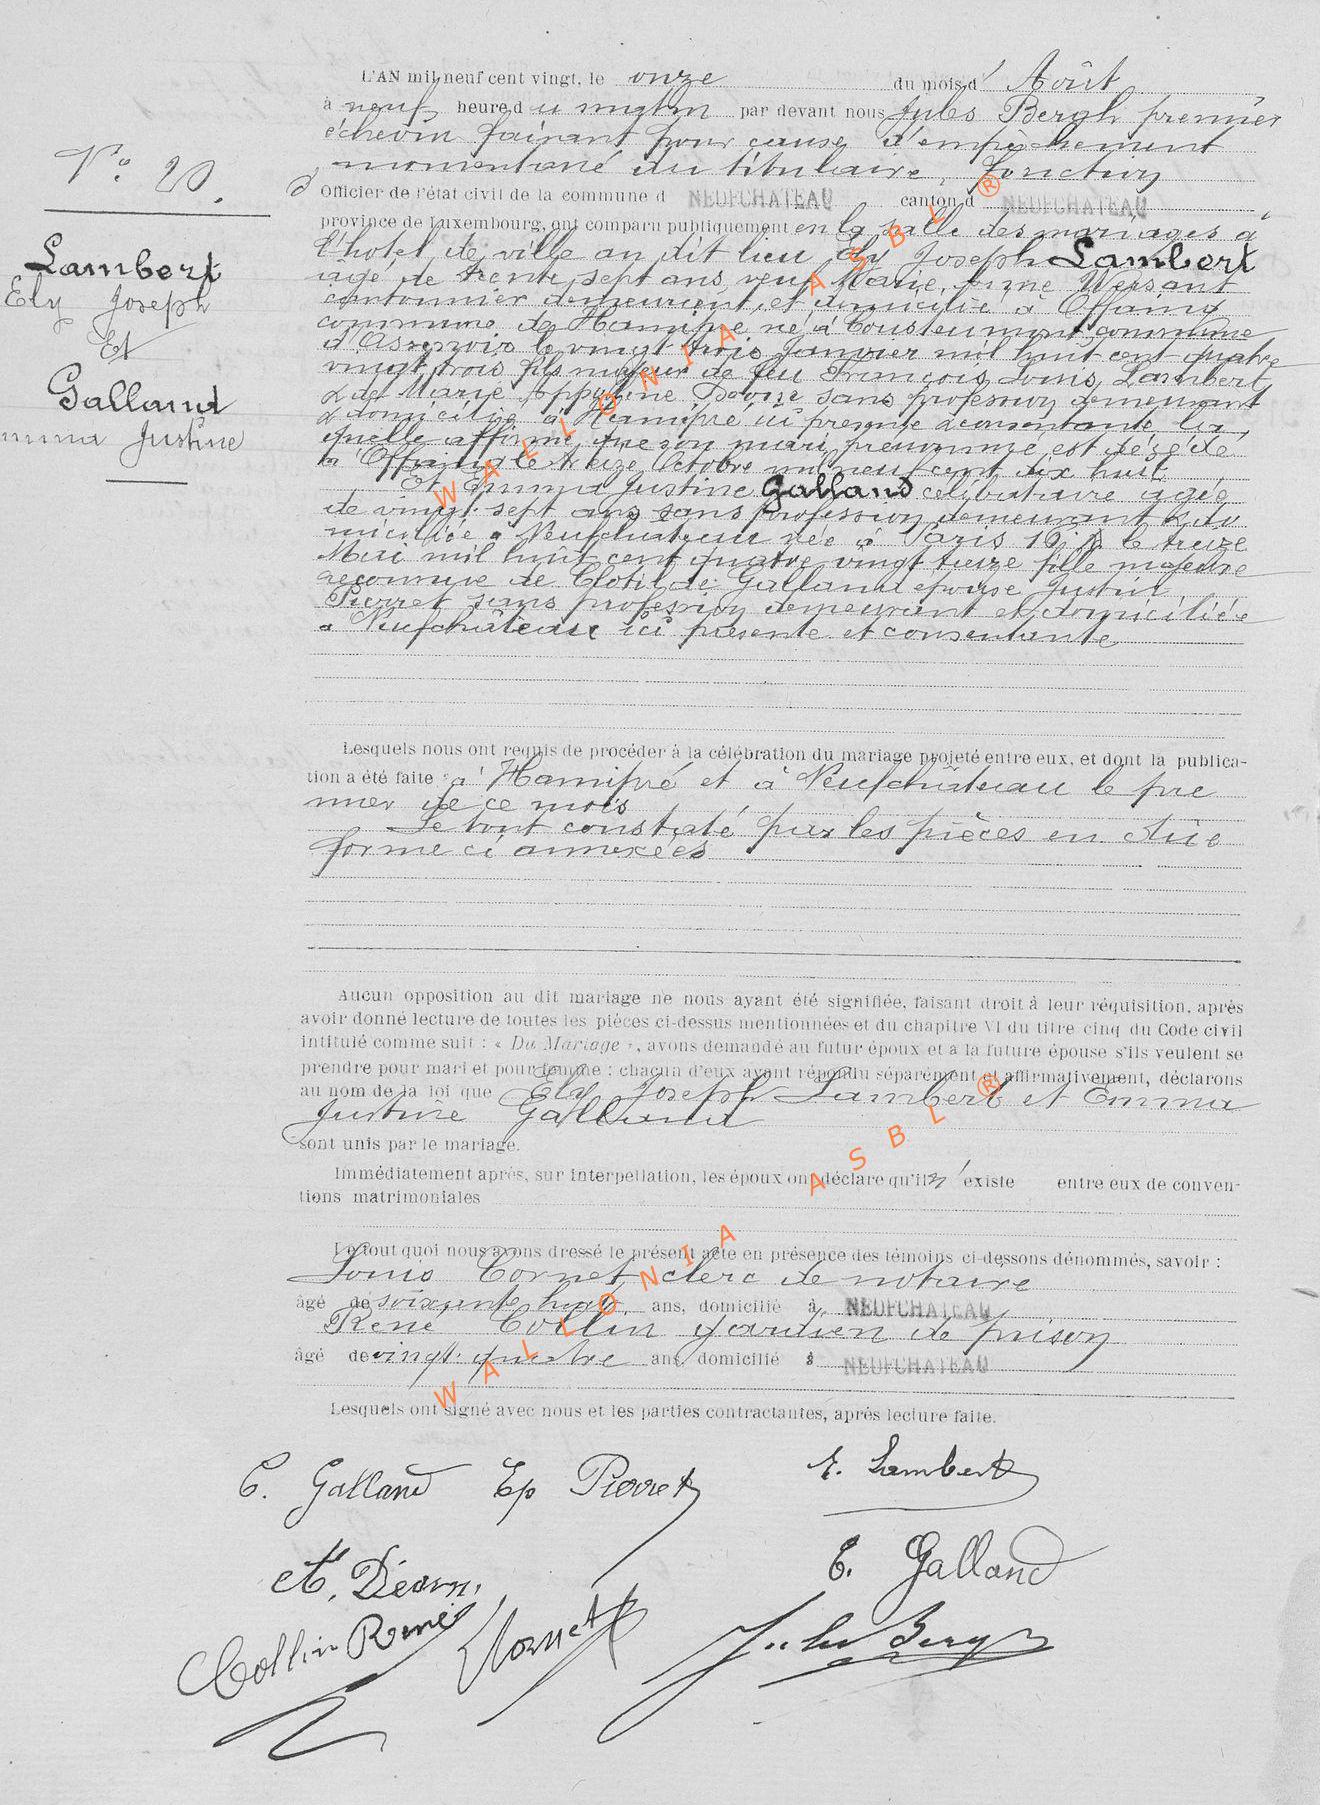 L'AN mil neuf cent vingt, le onze du mois d' Août
à neuf heure du matin par devant nous Jules Bergh premier
échevin faisant pour cause d'empêchement
momentané du titulaire, fonction
d'Officier de l'état civil de la commune d NEUFCHATEAU canton d NEUFCHATEAU
province de Luxembourg, ont comparu publiquement en la salle des mariages à
l'hotel de ville au dit lieu Ely Joseph Lambert
agé de trente sept ans, veuf Marie
cantonnier demeurant et domicilié à Offaing
commune de Hamipré né à commune
d'Assenois le vingt trois Janvier mil huit cent quatre
vingt trois fils majeur de feu François Louis Lambert
& de Marie sans profession demeurant
& domiciliée à Hamipré ici présente & consentante
quelle affirme que son mari prénommé est décédé
à Offaing le treize Octobre mil neuf cent dix huit
Et Emma Justine Galland célibataire agée
de vingt sept ans sans profession demeurant & do
miciliée à Neufchateau née à Paris le treize
Mai mil huit cent quatre vingt treize fille majeure
reconnue de Clotilde Galland épouse Justin
Pierret sans profession demeurant et domiciliée
à Neufchâteau ici présente et consentante
N° 20.
Lambert
Ely Joseph
Et
Galland
mma Justine
Lesquels nous ont requis de procéder à la célébration du mariage projeté entre eux, et dont la publica-
tion a été faite à Hamipré et à Neufchâteau le pre
mier de ce mois
Le tout constaté par les pièces en due
forme ci annexées
Aucun opposition au dit mariage ne nous ayant été signifiée, faisant droit à leur réquisition, après
avoir donné lecture de toutes les pièces ci-dessus mentionnées et du chapitre VI du titre cinq du Code civil
intitulé comme suit : « Du Mariage », avons demandé au futur époux et à la future épouse s'ils veulent se
prendre pour mari et pour femme : chacun d'eux ayant répondu séparément et affirmativement, déclarons
au nom de la loi que Ely Joseph Lambert et Emma
Justine Galland
sont unis par le mariage.
Immédiatement après, sur interpellation, les époux ont déclaré qu'il n'existe entre eux de conven-
tions matrimoniales
Le tout quoi nous avons dressé le présent acte en présence des témoins ci-dessons dénommés, savoir :
Louis Cornet clerc de notaire
âgé de soixante huit ans, domicilié à NEUFCHATEAU
René Collin gardien de prison
âgé de vingt quatre ans, domicilié à NEUFCHATEAU
Lesquels ont signé avec nous et les parties contractantes, après lecture faite.
C. Galland Ep Pierret
E. Lambert
E. Galland
Collin René
Cornet
Jules Bergh
WALLONIA ASBL ®
WALLONIA ASBL ®